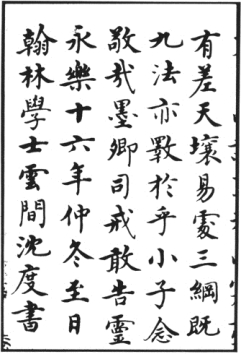 有差天壤易處三綱既
九法亦斁於乎小子念
敬哉墨卿司戒敢告靈
永樂十六年仲冬至日
翰林學士雲間沈度書